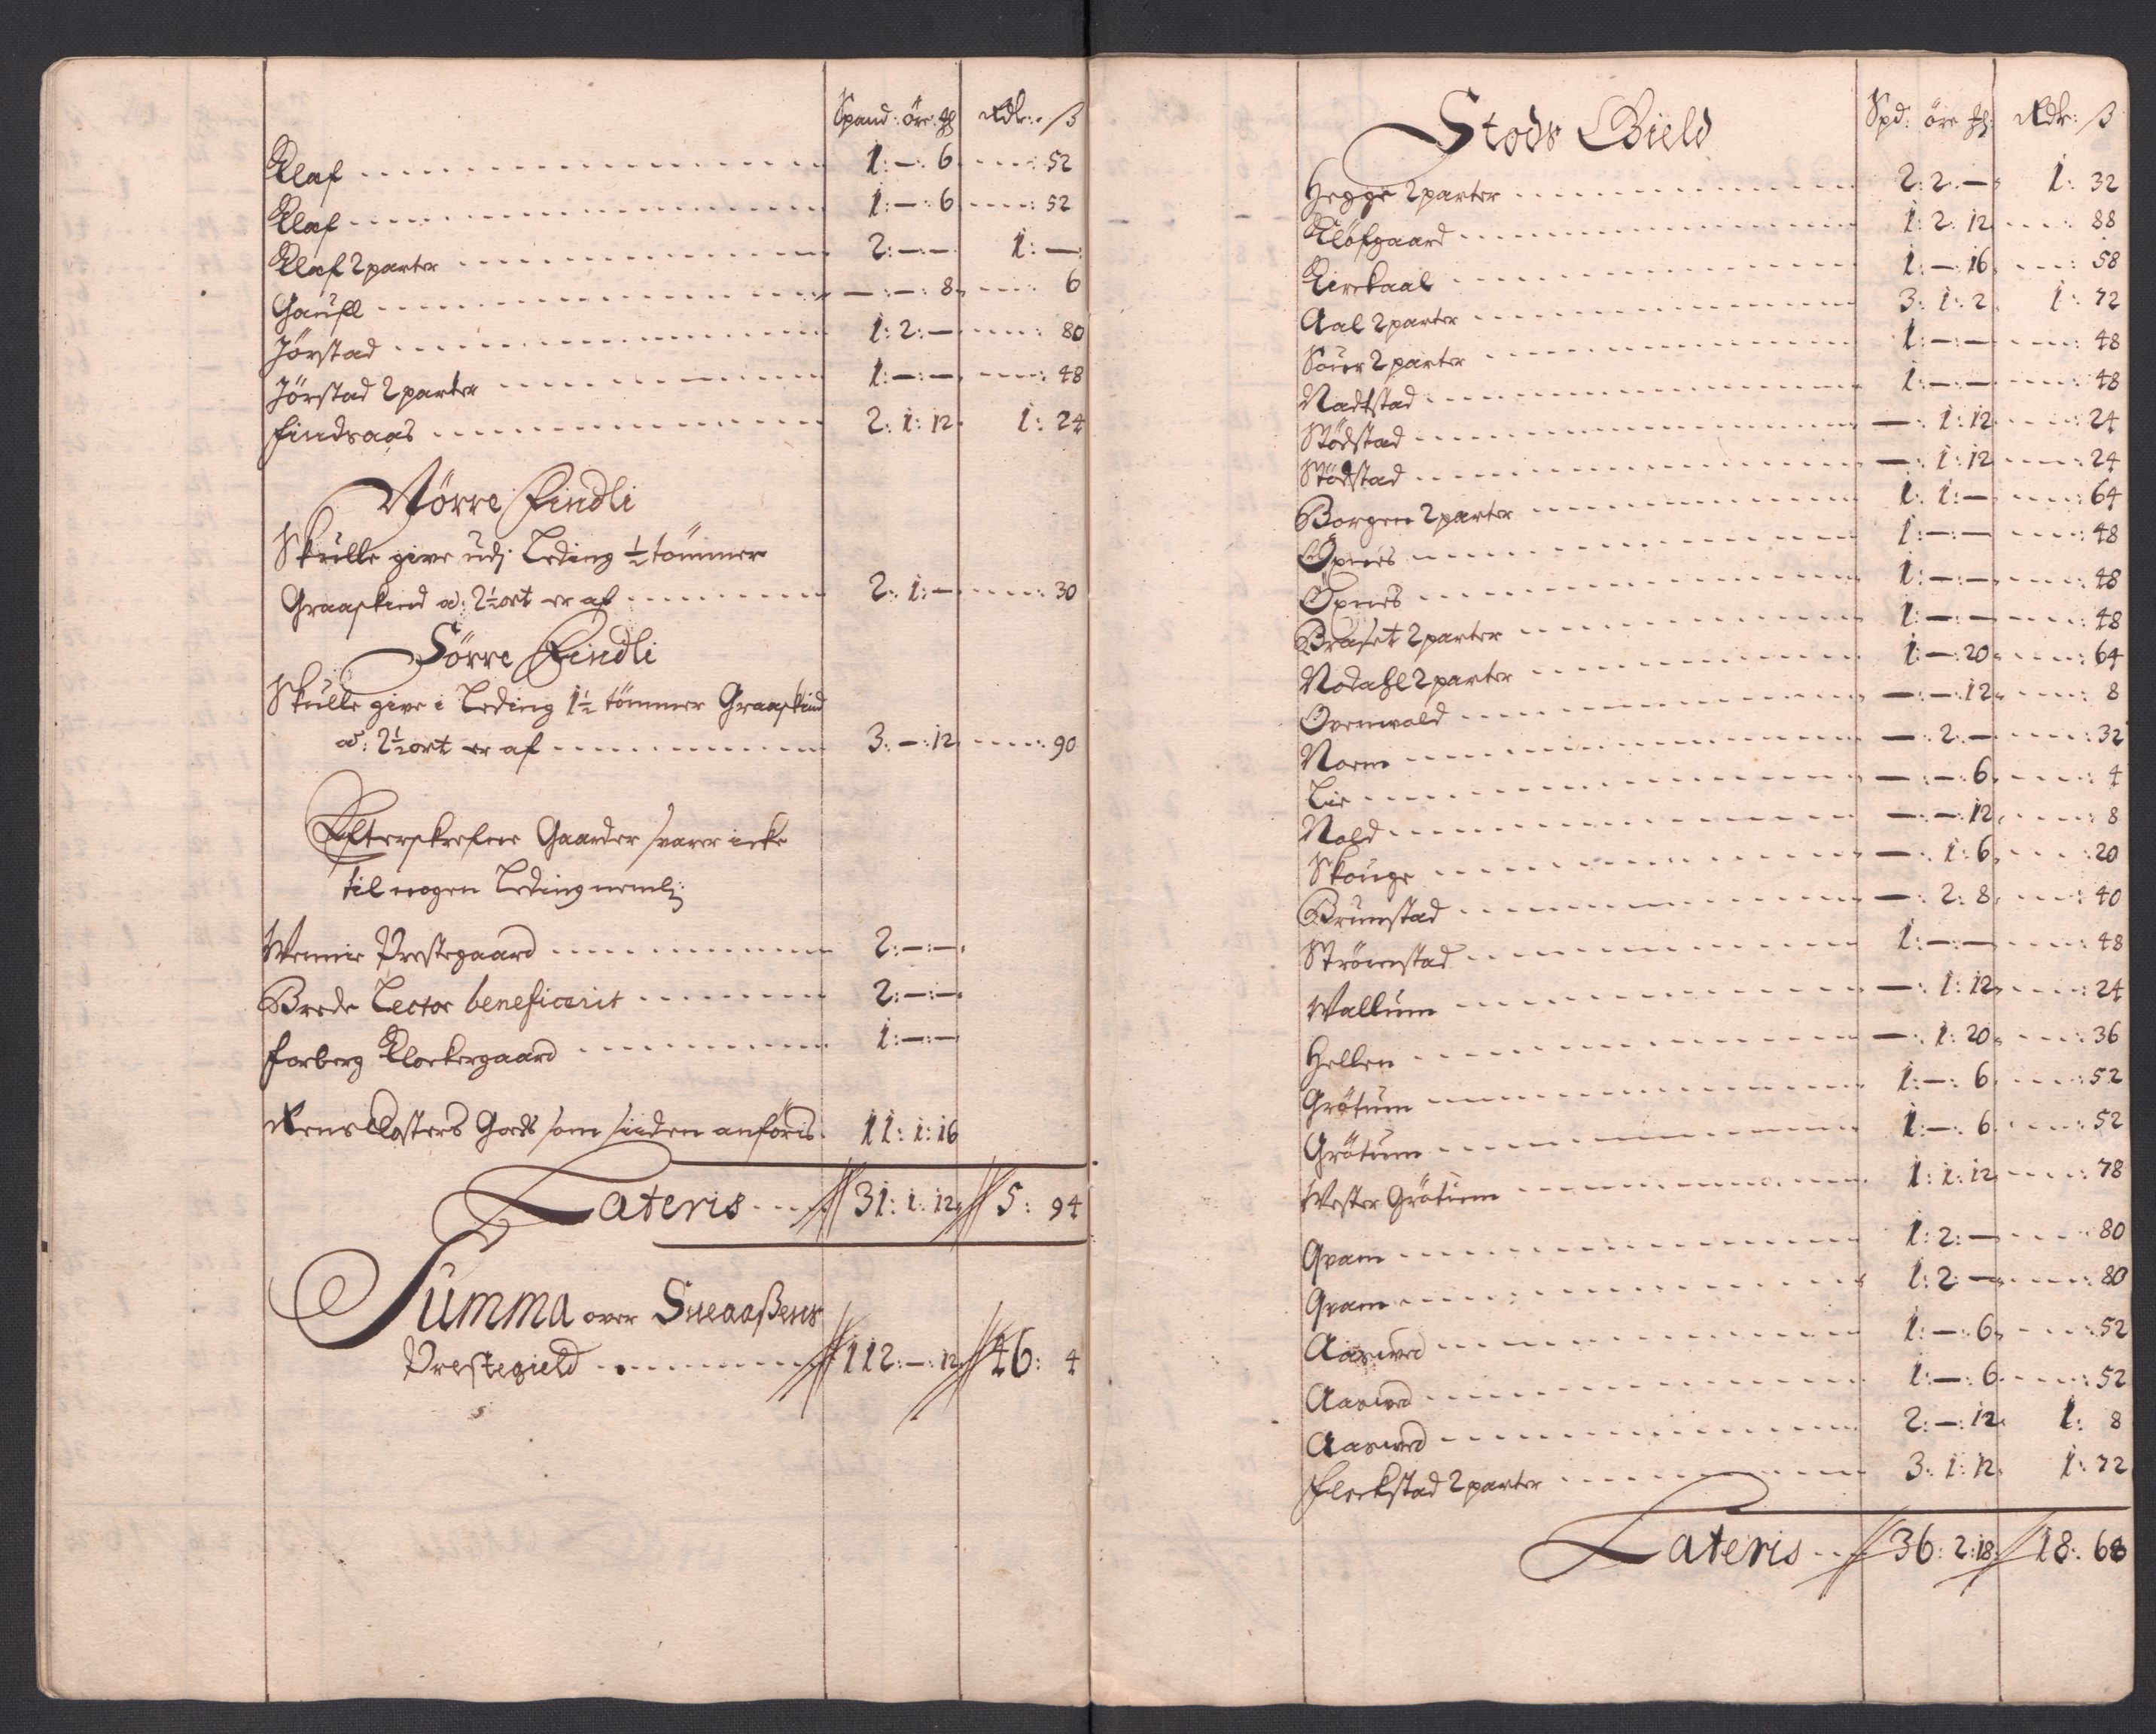 Spand: öre: ℔ Rdlr: ß
Klaf 1:—:6 52
Klaf 1:—:6 52
Klaf 2 parter 2:—:— 1:—
Gaufl —:—:8 6
Jörstad 1:2:— 80
Jörstad 2 parter 1:—:— 48
Findsaas 2:1:12 1:24
Nörre Findli
Skulle give udj Leding ½ tömmer
Graaskind a: 2½ ort er af 2:1:— 30
Sörre Findli
Skulle give i Leding 1½ tömmer Graaskind
a: 2½ ort er af 3:—:12 90
Efterskrefne Gaarder svarer icke
til nogen Leding nemlj:
Wennie Prestegaard 2:—:—
Brede Lector beneficerit 2:—:—
Forberg Klockergaard 1:—:—
Rens Closters Gods som siden anföris 11:1:16
Lateris 31:1:12 5:94
Summa over Sneaaßens
Prestegield 112:—:12 46:4
Stods Gield Spd: öre ℔: Rdlr: ß
Hegge 2 parter 2:2:— 1:32
Klöfgaard 1:2:12 88
Kirckaal 1:—:16 58
Aal 2 parter 3:1:2 1:72
Souer 2 parter 1:—:— 48
Nadtstad 1:—:— 48
Stödstad —:1:12 24
Stödstad —:1:12 24
Borgen 2 parter 1:1:— 64
Öpnes 1:—:— 48
Öpnes 1:—:— 48
Braset 2 parter 1:—:— 48
Nodahl 2 parter 1:—:20 64
Overwald —:—:12 8
Norem —:2:— 32
Lie —:—:6 4
Nold —:—:12 8
Skouge —:1:6 20
Brunstad —:2:8 40
Strömstad 1:—:— 48
Wallum —:1:12 24
Hellen —:1:20 36
Grötum 1:—:6 52
Grötum 1:—:6 52
Wester Grötum 1:1:12 78
Qvam 1:2:— 80
Qvam 1:2:— 80
Aaswed 1:—:6 52
Aaswed 1:—:6 52
Aaswed 2:—:12 1:8
Fleckstad 2 parter 3:1:12 1:72
Lateris 36:2:18 18:68